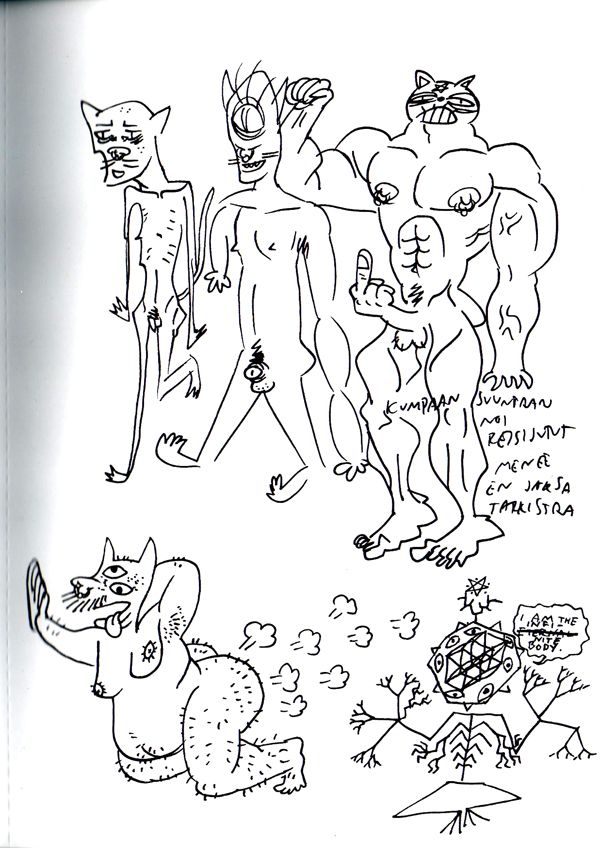 KUMPAAN SUUNTAAN
NOI
REISIJUTUT
MENEE
EN JAKSA
TARKISTAA
I AM THE
INFI
ETERNAL
NITE
BODY.